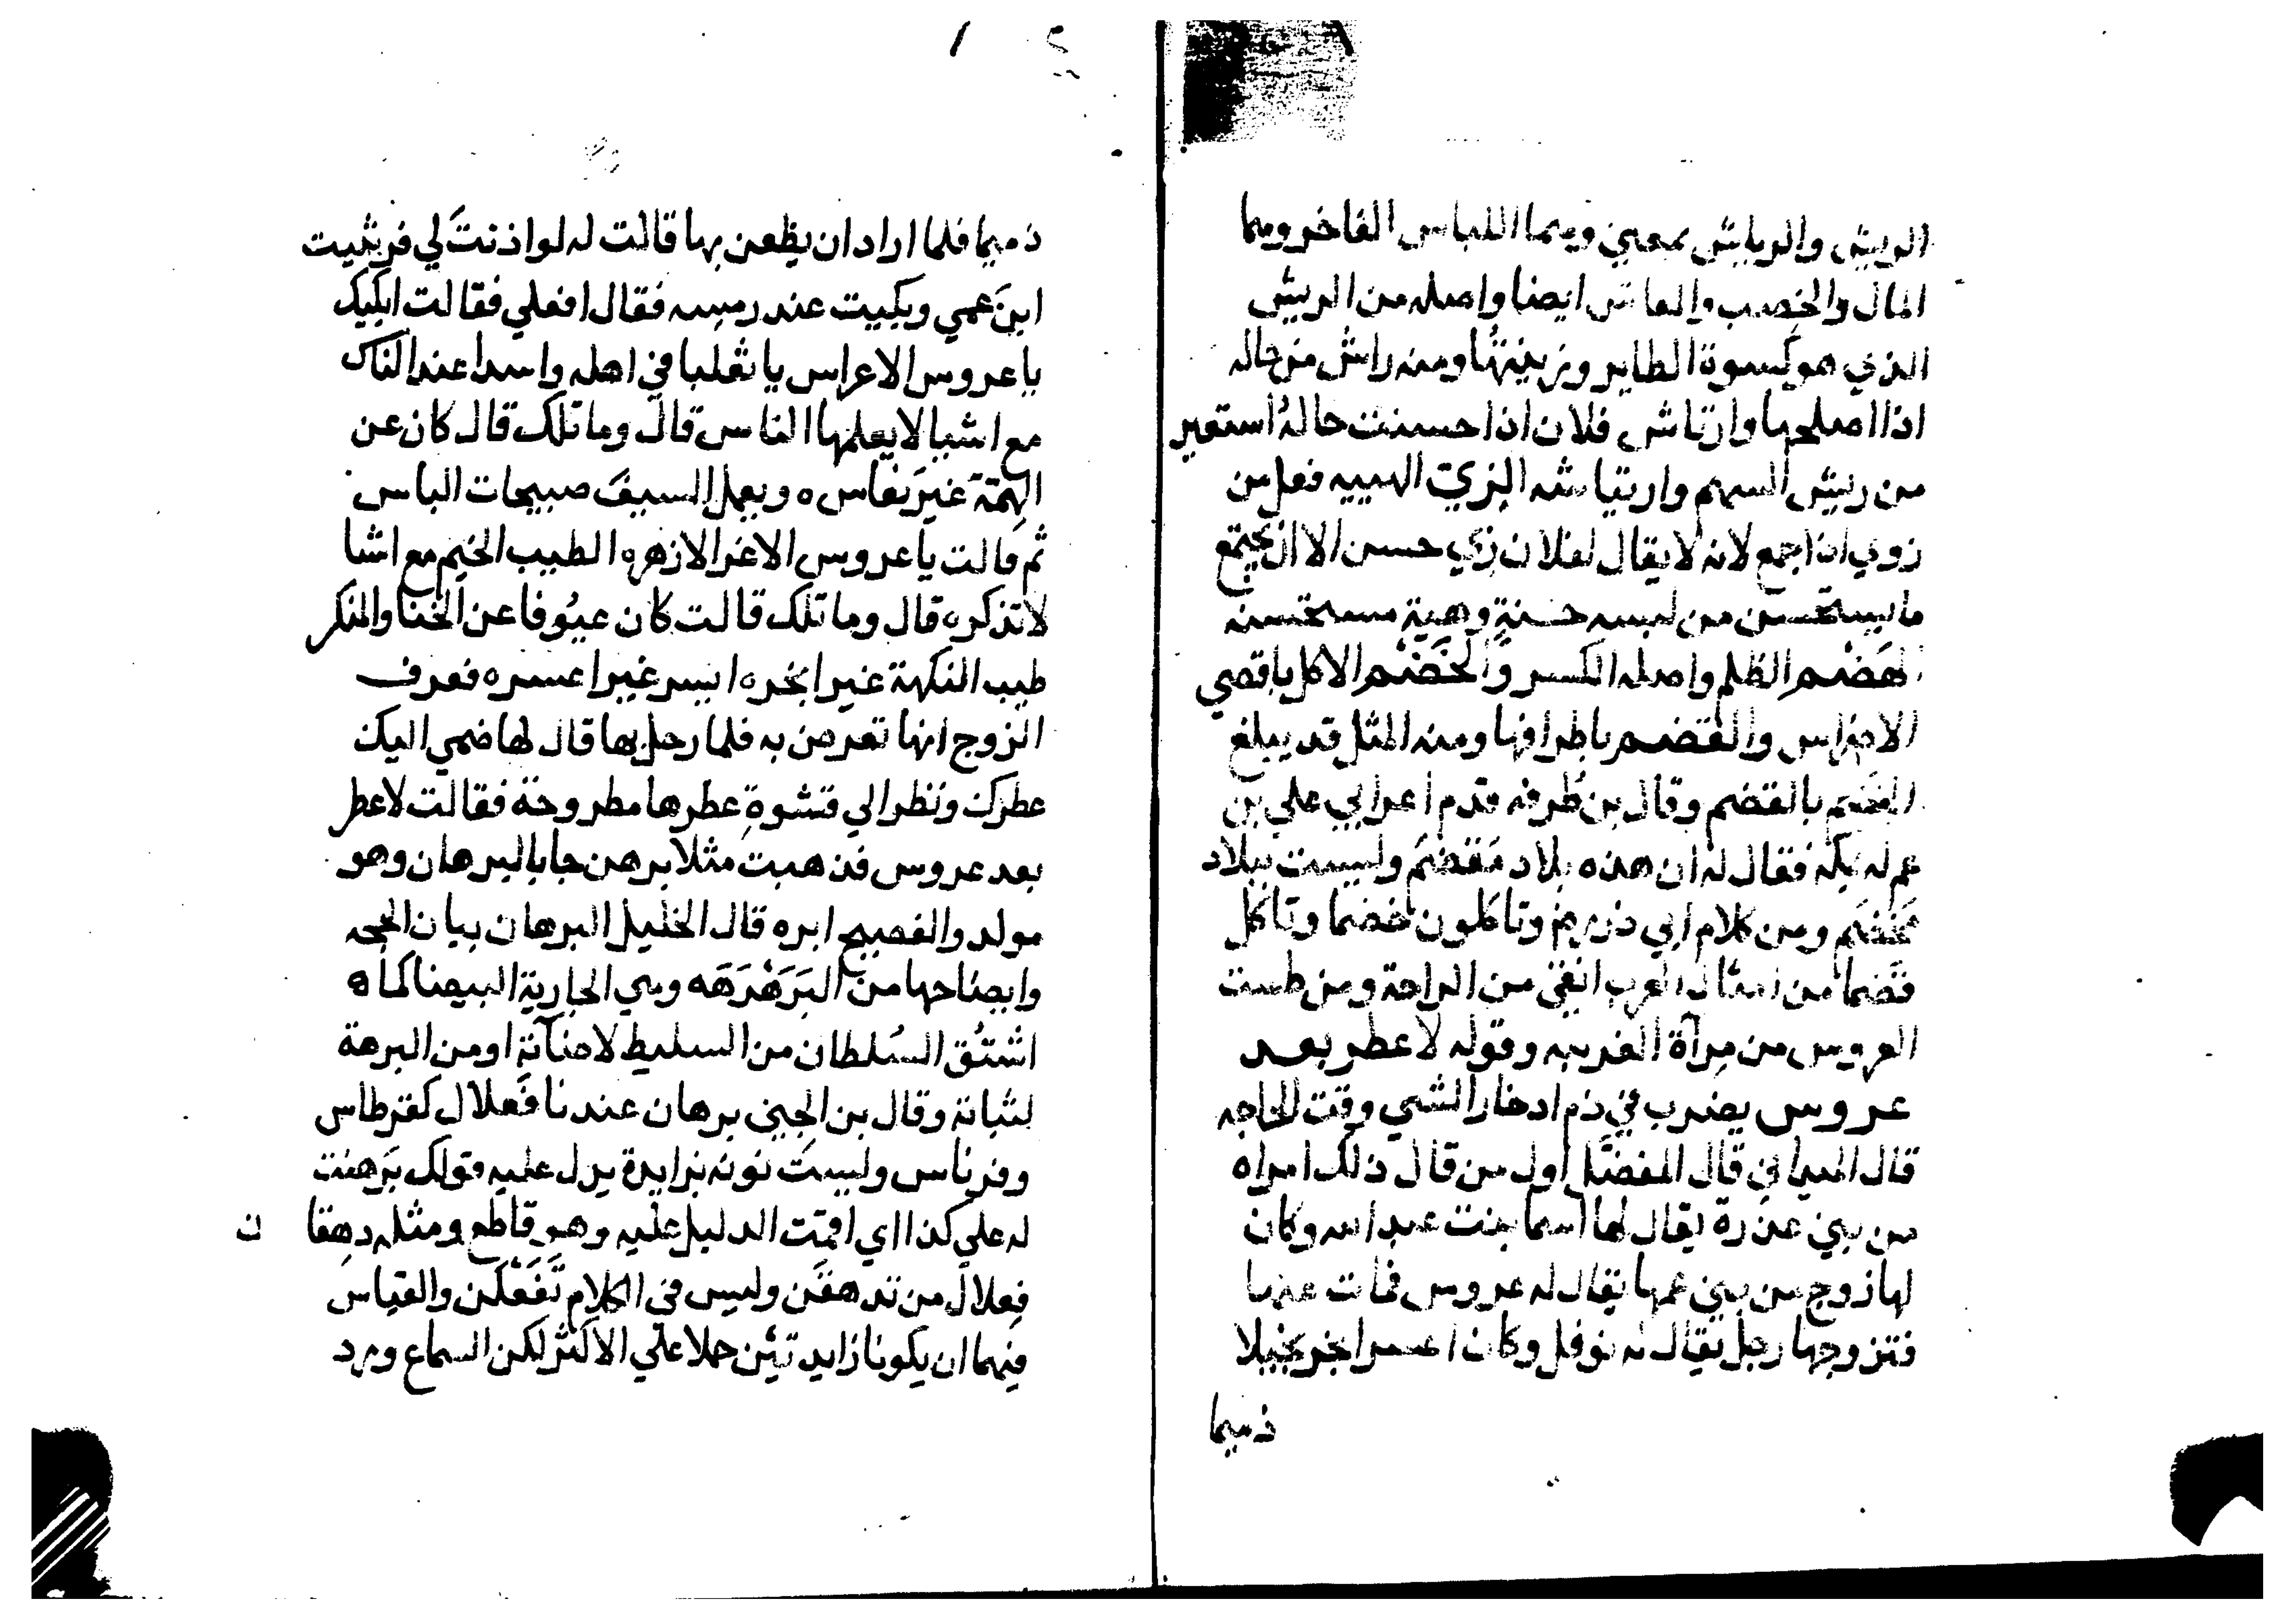 الريش والرياش بمعني وهما اللباس الفاخر وهما
المال والخصب والمعاش ايضا واصله من الريش
الذي هو كسوة الطاير وزينتها ومنه راش من حاله
اذا اصلحها وارتاش فلان اذا حسنت حاله استعير
من ريش السهم وارتياشه الزي الهييه فعل من
زوي اذا جمع لانه لا يقال لفلان زي حسن الا ان يجتمع
ما يستحسن من لبسه حسنة وهية مستحسنه
الهضم الظلم واصله الكسر والخضم الاكل باقصي
الاضراس والقضم باطرافها ومنه المثل قد يبلغ
الخضم بالقضم وقال بن طرفه قدم اعرابي علي بن
عم له بمكة فقال له ان هذه بلاد مقضم وليست ببلاد
مخضم ومن كلام ابي ذر وتاكلون خضما وناكل
قضما من امثال العرب انقي من الراحة ومن طست
العروس من مرآة الغريبه وقوله لا عطر بعد
عروس يضرب في ذم ادخار الشي وقت الحاجه
قال الميداني قال المفضل اول من قال ذلك امراه
من بني عذرة يقال لها اسما بنت عبد الله وكان
لها زوج من بني عمها يقال له عروس فمات عنها
فتزوجها رجل يقال له نوفل وكان اعسر ابخر بخيلا
ذميما
ذميما فلما اراد ان يظعن بها قالت له لو اذنت لي فرثيت
ابن عمي وبكيت عند رمسه فقال افعلي فقالت ابكيك
يا عروس الاعراس يا ثعلبا في اهله واسدا عند الناس
مع اشيا لا يعلمها الناس قال وما تلك قال كان عن
الهمة غير نعاس ه ويعمل السيف صبيحات الباس
ثم قالت يا عروس الاغر الازهر ه الطيب الخيم مع اشا
لا تذكر ه قال وما تلك قالت كان عيوفا عن الخنا والمنكر
طيب النكهة غير ابخر ه ايسر غير اعسر ه فعرف
الزوج انها تعرض به فلما رحل بها قال لها ضمي اليك
عطرك ونظر الي قشوة عطرها مطروحة فقالت لا عطر
بعد عروس فذهبت مثلا برهن جا بالبرهان وهو
مولد والفصيح ابره قال الخليل البرهان بيان الحجه
وايضاحها من البرهرهه وهي الجارية البيضا كما ه
اشتق السلطان من السليط لاضآنه او من البرهة
لثباته وقال بن الجني برهان عندنا فعلال كقرطاس
وفرناس وليست نونه بزايدة يدل عليه قولك برهنت
له علي كذا اي اقمت الدليل عليه وهو قاطع ومثله دهقا ن
فعلال من تدهقن وليس في الكلام تفعلن والقياس
فيهما ان يكونا زايدتين حملا علي الاكثر لكن السماع ورد